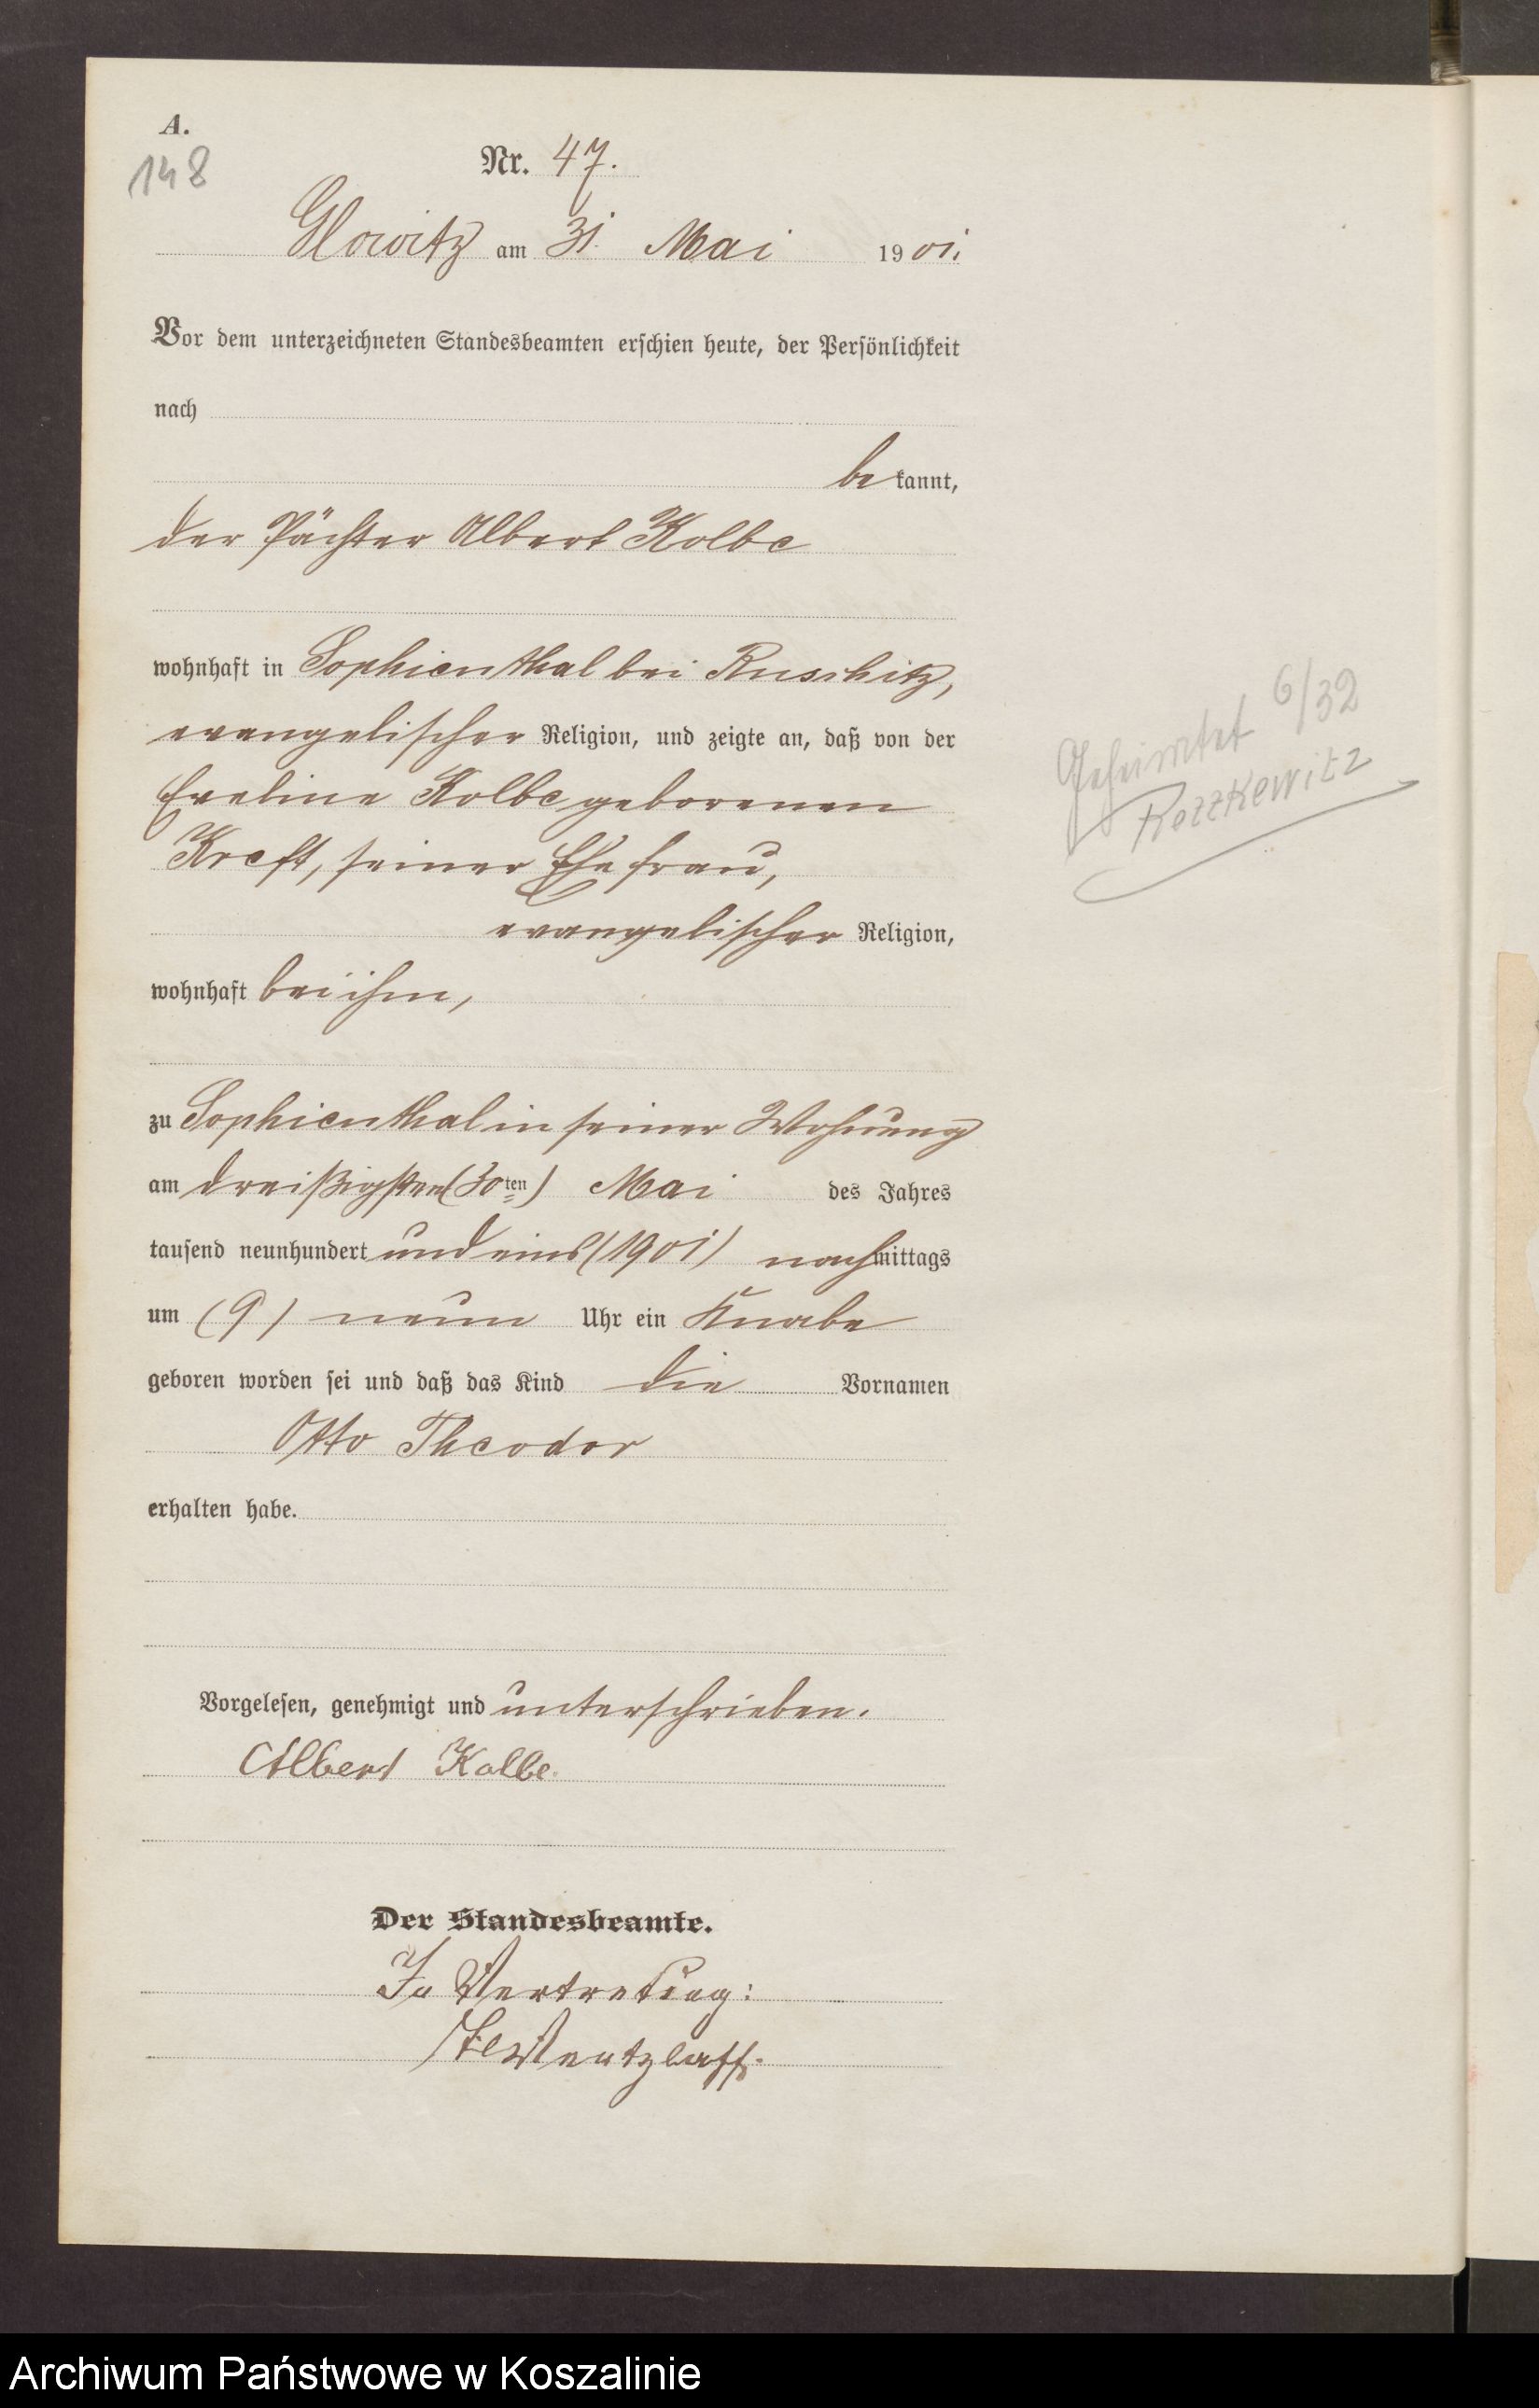 A.
148
Nr. 47.
Glowitz am 31. Mai 1901.
Vor dem unterzeichneten Standesbeamten erschien heute, der Persönlichkeit
nach
bekannt,
der Pächter Albert Kolbe
wohnhaft in Sophienthal bei Ruschitz,
evangelischer Religion, und zeigte an, daß von der
Eveline Kolbe geborenen
Kreft, seiner Ehefrau,
evangelischer Religion,
wohnhaft bei ihm,
zu Sophienthal in seiner Wohnung
am dreißigsten (30ten) Mai des Jahres
tausend neunhundert und eins (1901) nachmittags
um (9) neun Uhr ein Knabe
geboren worden sei und daß das Kind die Vornamen
Otto Theodor
erhalten habe.
Vorgelesen, genehmigt und unterschrieben.
Albert Kolbe.
Der Standesbeamte.
In Vertretung:
Wentzlaff.
Geheiratet 6/32
Rozzkewitz
Archiwum Państwowe w Koszalinie